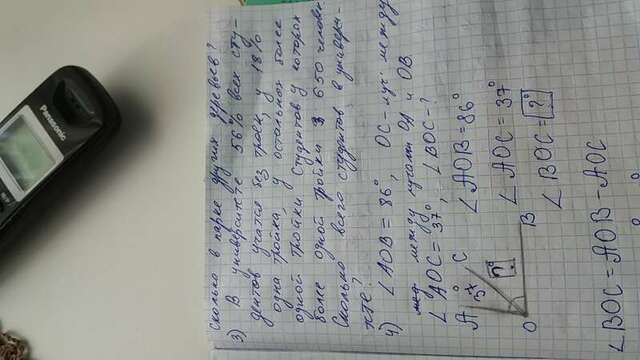 Panasonic
сколько в парке других деревьев?
3) В университете 56% всех сту-
дентов учатся без троек, у 18%
одна тройка, у остальных более
одной тройки. Студентов у которых
более одной тройки 650 человек
Сколько всего студентов в универси-
тете?
4) ∠AOB = 86°, OC - луч между
между лучами OA и OB.
∠AOC = 37°, ∠BOC - ?
A 37° C
∠AOB = 86°
?°
∠AOC = 37°
O B
∠BOC = ?°
∠BOC = AOB - AOC